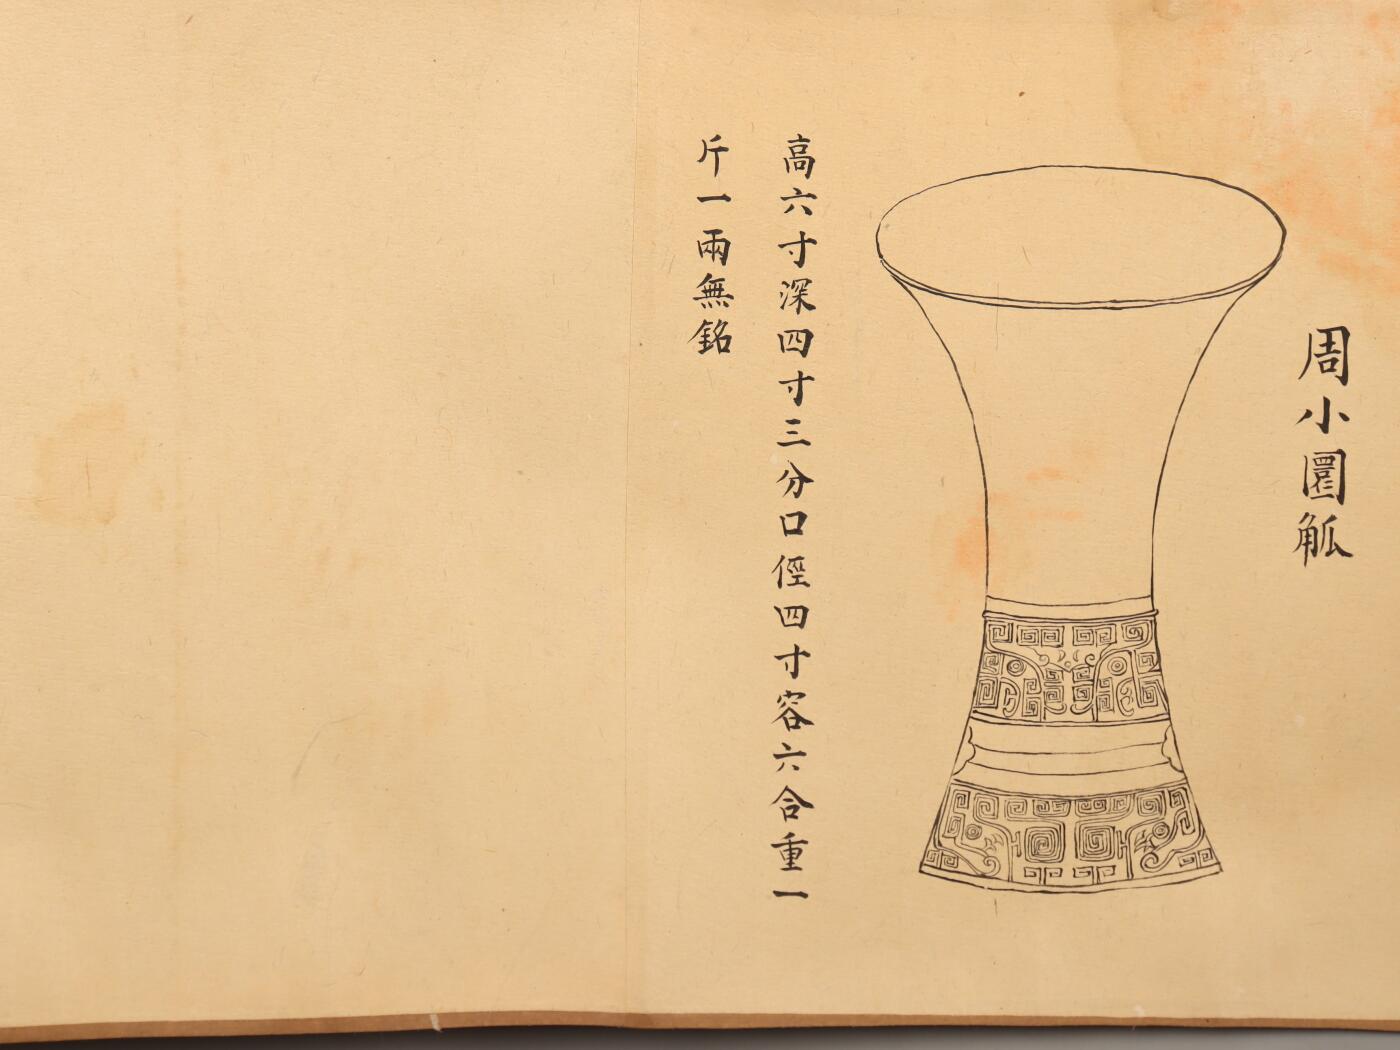 周小圜觚
高六寸深四寸三分口徑四寸容六合重一
斤一兩無銘